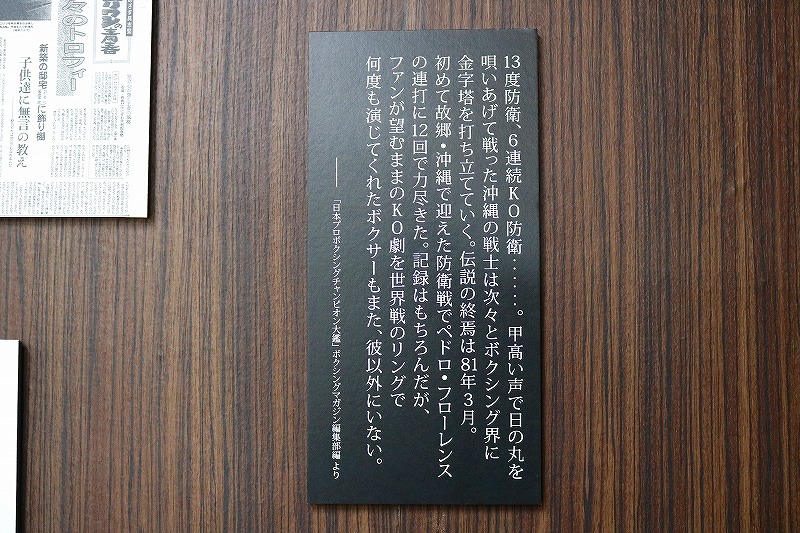 13度防衛、6連続KO防衛……。甲高い声で日の丸を
唄いあげて戦った沖縄の戦士は次々とボクシング界に
金字塔を打ち立てていく。伝説の終焉は81年3月。
初めて故郷・沖縄で迎えた防衛戦でペドロ・フローレンス
の連打に12回で力尽きた。記録はもちろんだが、
ファンが望むままのKO劇を世界戦のリングで
何度も演じてくれたボクサーもまた、彼以外にいない。
――「日本プロボクシングチャンピオン大鑑」ボクシングマガジン編集部編より
々のトロフィー
新築の邸宅
に飾り棚
子供達に無言の教え